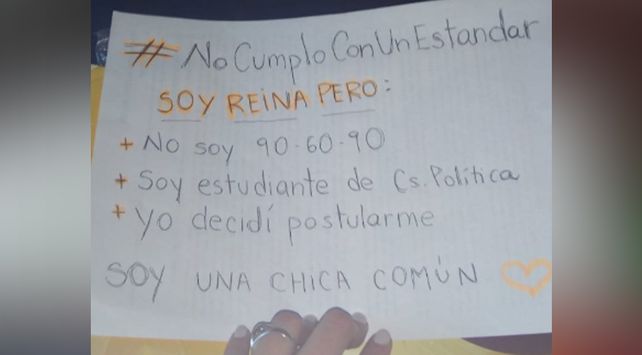 #NoCumploConUnEstandar
SOY REINA PERO:
+ No soy 90-60-90
+ Soy estudiante de Cs. Política
+ Yo decidí postularme
SOY UNA CHICA COMÚN